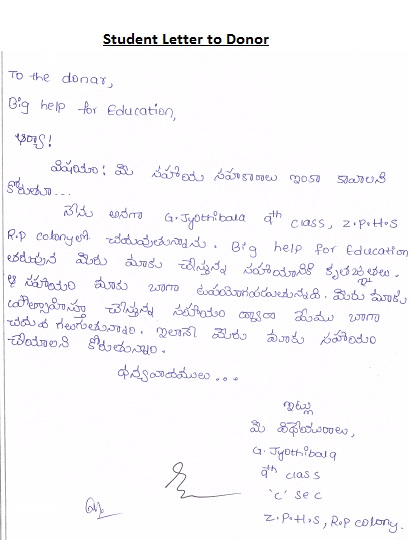 Student Letter to Donor
To the donar,
Big help for Education,
ఆర్యా!
విషయం: మీ సహాయ సహకారాలు ఇంకా కావాలని
కోరుతూ...
నేను అనగా G. Jyothibala 9th class, Z.P.H.S
R.P colonyలో చదువుతున్నాను. Big help for Education
తరుపున మీరు మాకు చేస్తున్న సహాయానికి కృతజ్ఞతలు.
ఆ సహాయం మాకు బాగా ఉపయోగపడుతున్నది. మీరు మాకు
ప్రోత్సాహిస్తూ చేస్తున్న సహాయం ద్వారా మేము బాగా
చదువ గలుగుతున్నాం. ఇలానే మీరు మాకు సహాయం
చేయాలని కోరుతున్నాం.
ధన్యవాదములు...
ఇట్లు
మీ విధేయురాలు,
G. Jyothibala
9th class
'C' sec
Z.P.H.S, R.P colony.